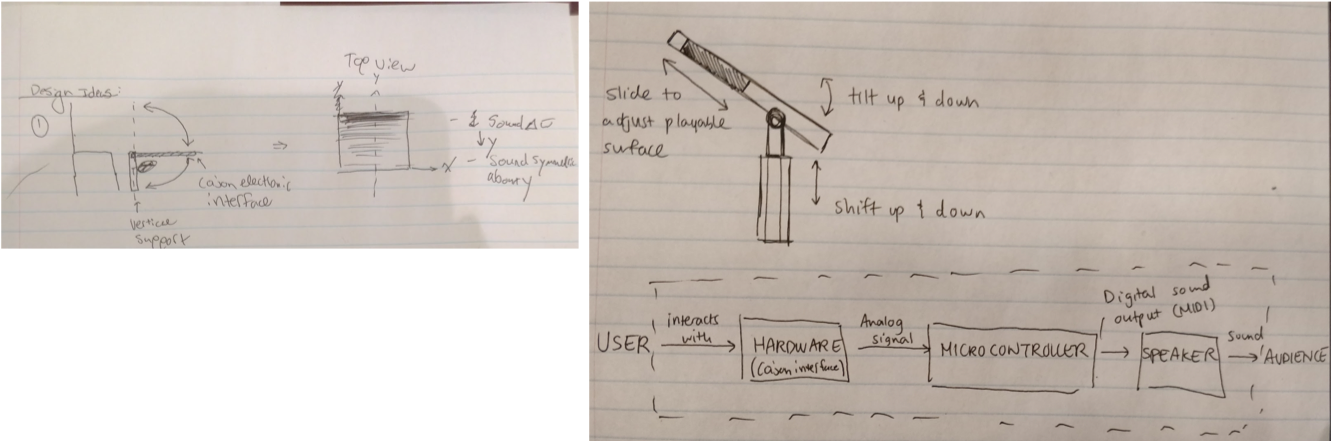 Design Ideas:
1
Cajon electronic
interface
vertical
support
Top view
Y
Y
- Sound Δ
↓ y
X
- Sound symmetric
about y
slide to
adjust playable
surface
tilt up & down
shift up & down
USER
interacts
with
HARDWARE
(Cajon interface)
Analog
signal
MICROCONTROLLER
Digital sound
output (MIDI)
SPEAKER
sound
AUDIENCE